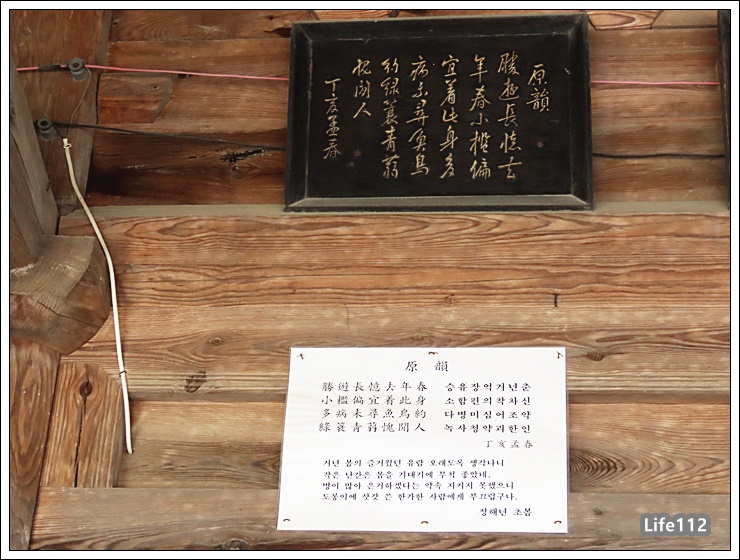 原韻
勝遊長憶去
年春小檻偏
宜着此身多
病未尋魚鳥
約綠蓑青蒻
愧閒人
丁亥孟春
原 韻
勝遊長憶去年春 승유장억거년춘
小檻偏宜着此身 소함편의착차신
多病未尋魚鳥約 다병미심어조약
綠簑青蒻愧閒人 녹사청약괴한인
丁亥孟春
거년 봄의 즐거웠던 유람 오래도록 생각나니
작은 난간은 몸을 기대기에 무척 좋았네.
병이 많아 은거하겠다는 약속 지키지 못했으니
도롱이에 삿갓 쓴 한가한 사람에게 부끄럽구나.
정해년 초봄
Life112